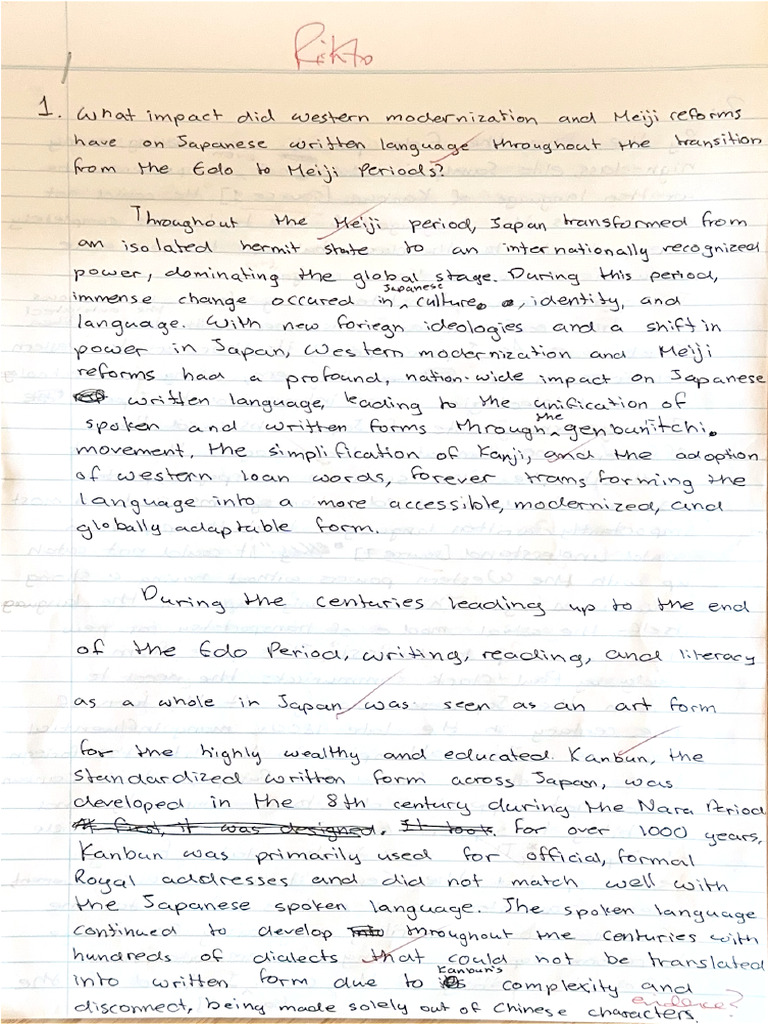 Rikto
1. What impact did western modernization and Meiji reforms
have on Japanese written language throughout the transition
from the Edo to Meiji Periods?
Throughout the Meiji period, Japan transformed from
an isolated hermit state to an internationally recognized
power, dominating the global stage. During this period,
immense change occured in Japanese culture, identity, and
language. With new foriegn ideologies and a shift in
power in Japan, Western modernization and Meiji
reforms had a profound, nation-wide impact on Japanese
written language, leading to the unification of
spoken and written forms through the genbun'itchi
movement, the simplification of Kanji, and the adoption
of western loan words, forever transforming the
language into a more accessible, modernized, and
globally adaptable form.
During the centuries leading up to the end
of the Edo Period, writing, reading, and literacy
as a whole in Japan was seen as an art form
for the highly wealthy and educated. Kanbun, the
standardized written form across Japan, was
developed in the 8th century during the Nara Period
At first, it was designed. It took. For over 1000 years,
Kanbun was primarily used for official, formal
Royal addresses and did not match well with
the Japanese spoken language. The spoken language
continued to develop throughout the centuries with
hundreds of dialects that could not be translated
into written form due to Kanbun's complexity and
disconnect, being made solely out of Chinese characters.
evidence?